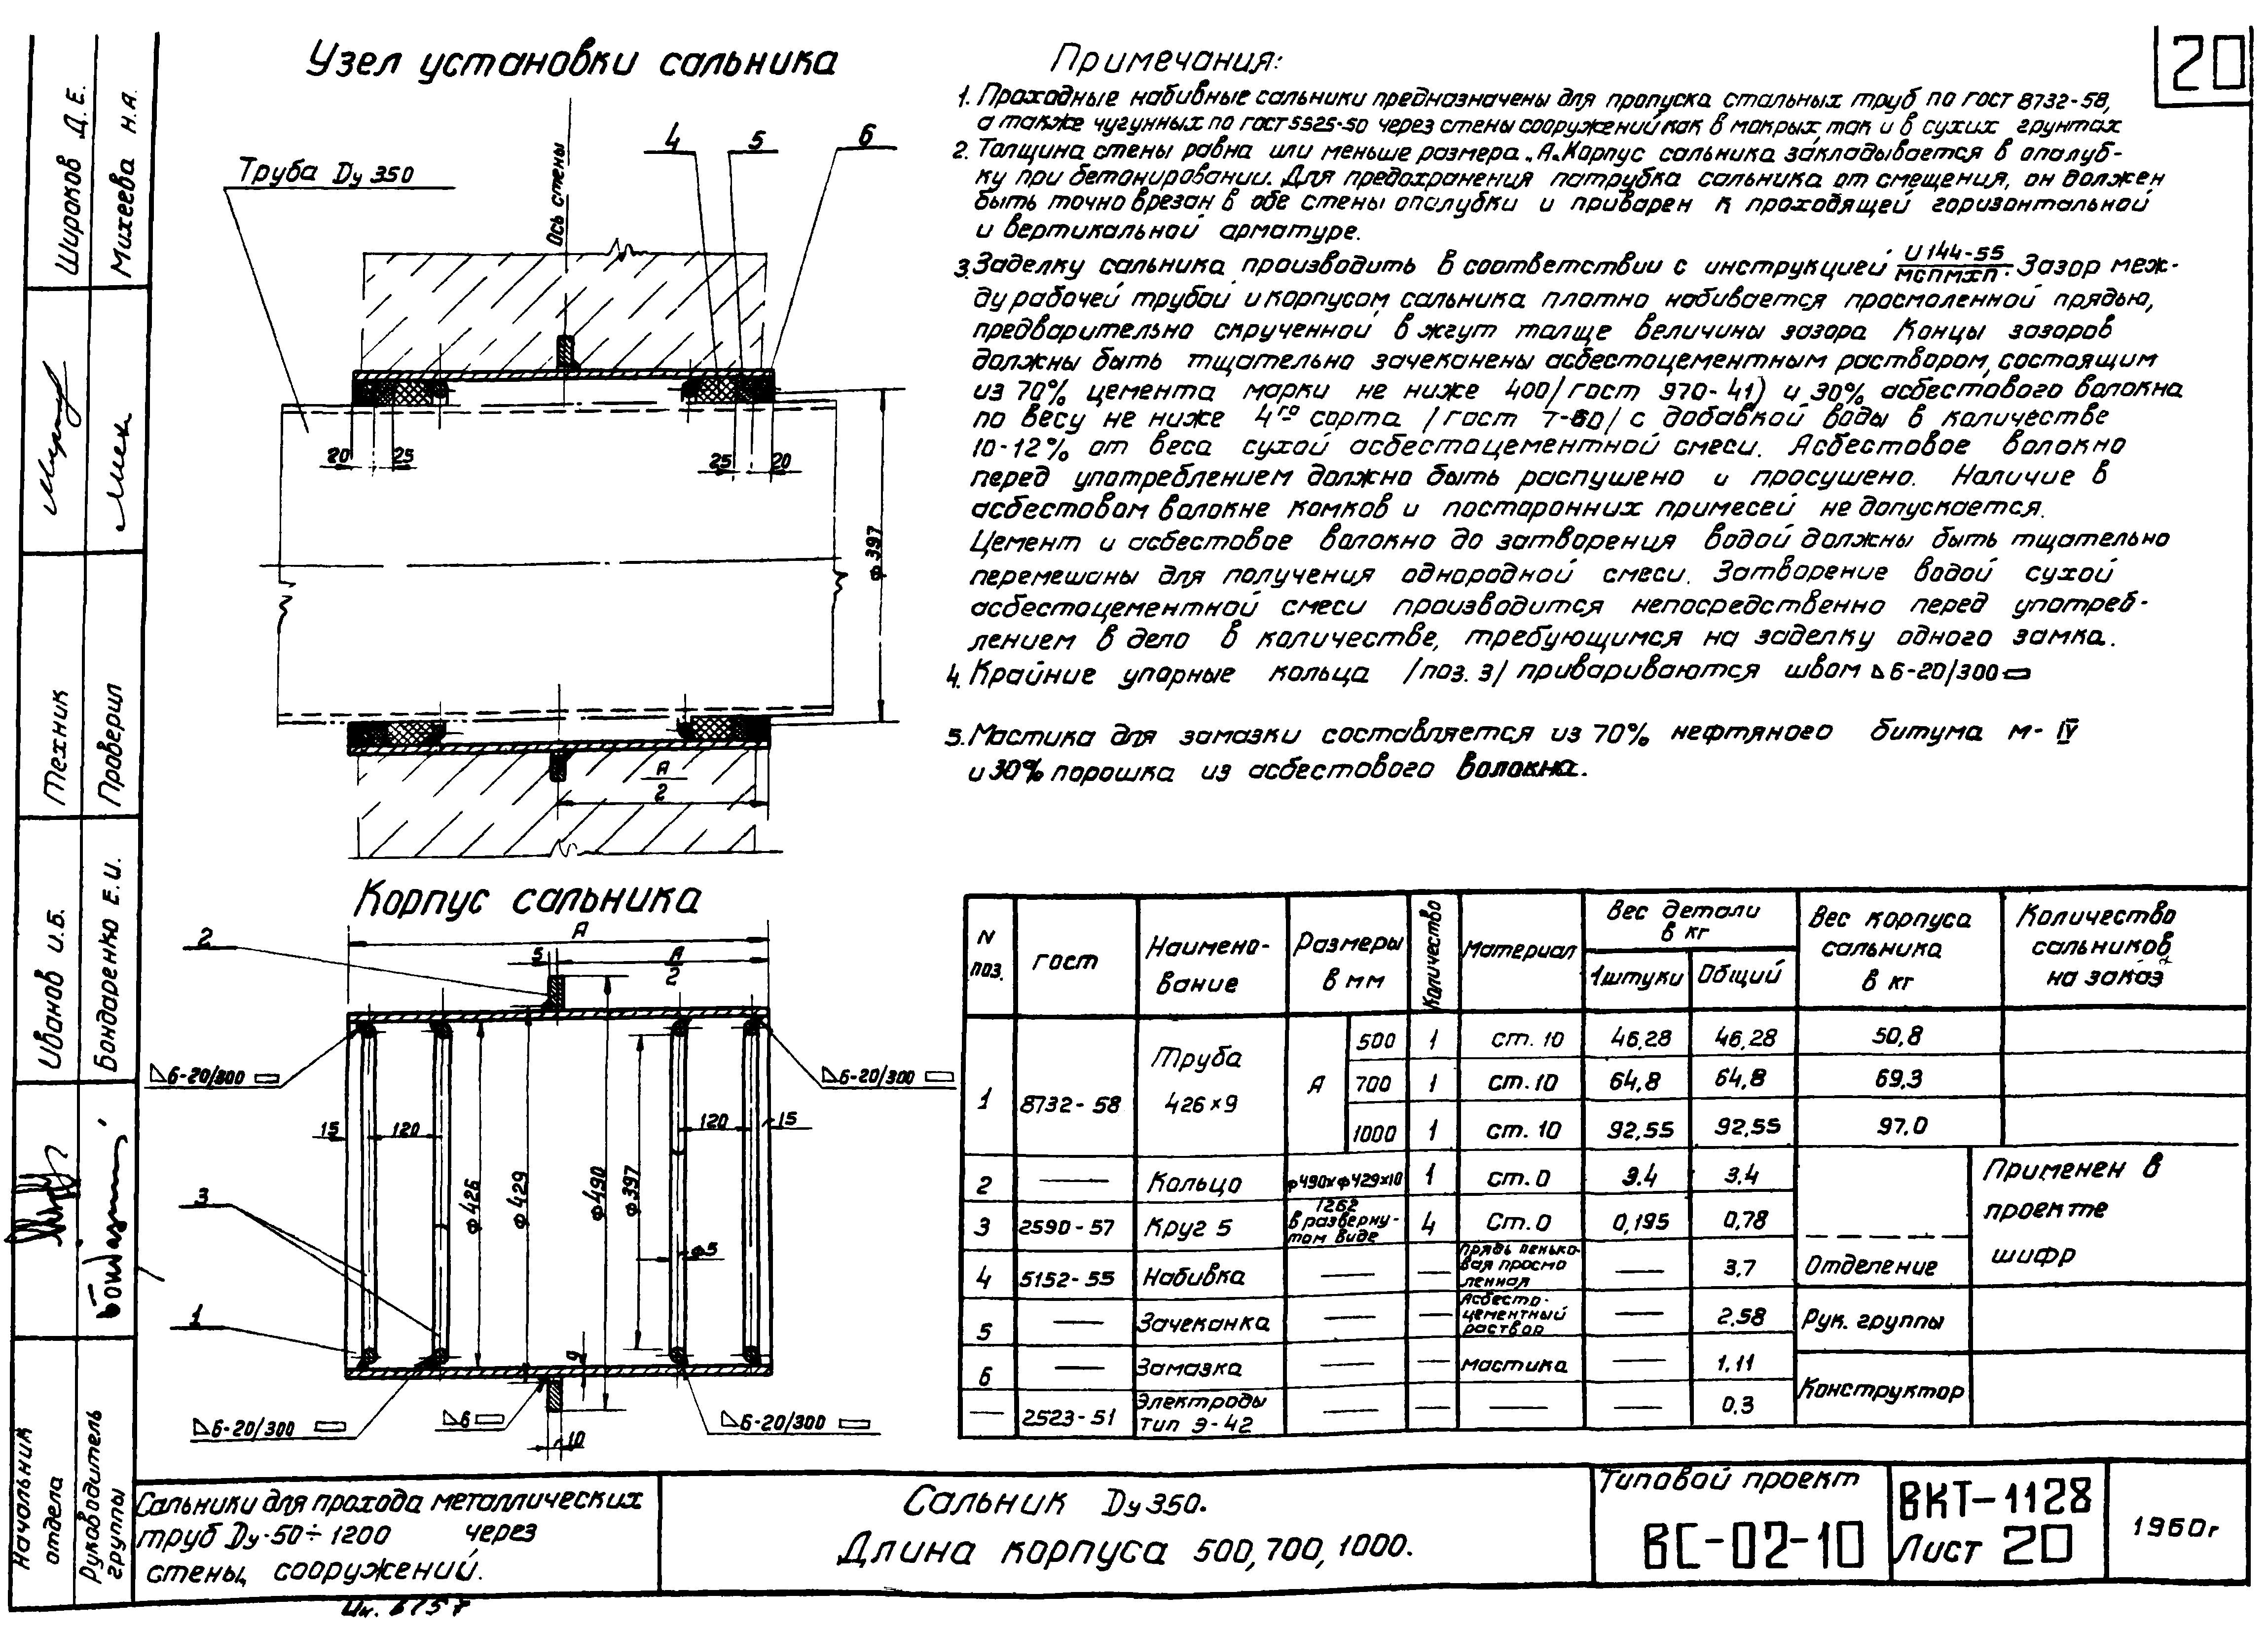 20
Узел установки сальника
Труба Ду 350
Ось стены
4
5
6
20
25
25
20
ф397
А
2
Примечания:
1. Проходные набивные сальники предназначены для пропуска стальных труб по гост 8732-58,
а также чугунных по гост 5525-50 через стены сооружений как в мокрых так и в сухих грунтах
2. Толщина стены равна или меньше размера „А„. Корпус сальника закладывается в опалуб-
ку при бетонировании. Для предохранения патрубка сальника от смещения, он должен
быть точно врезан в обе стены опалубки и приварен к проходящей горизонтальной
и вертикальной арматуре.
3. Заделку сальника производить в соответствии с инструкцией И 144-55 / мспмхп. Зазор меж-
ду рабочей трубой и корпусом сальника плотно набивается просмоленной прядью,
предварительно скрученной в жгут толще величины зазора Концы зазоров
должны быть тщательно зачеканены асбестоцементным раствором, состоящим
из 70% цемента марки не ниже 400/гост 970-41) и 30% асбестового волокна
по весу не ниже 4го сорта /гост 7-60/ с добавкой воды в количестве
10-12% от веса сухой асбестоцементной смеси. Асбестовое волокно
перед употреблением должно быть распушено и просушено. Наличие в
асбестовом волокне комков и посторонних примесей не допускается.
Цемент и асбестовое волокно до затворения водой должны быть тщательно
перемешаны для получения однородной смеси. Затворение водой сухой
асбестоцементной смеси производится непосредственно перед употреб-
лением в дело в количестве, требующимся на заделку одного замка.
4. Крайние упорные кольца /поз. 3/ привариваются швом 6-20/300
5. Мастика для замазки составляется из 70% нефтяного битума м-IV
и 30% порошка из асбестового волокна.
Корпус сальника
А
5
А
2
2
6-20/300
6-20/300
15
120
120
15
ф426
ф429
ф490
ф397
ф5
3
1
9
6-20/300
6
10
6-20/300
N поз. гост Наимено-вание Размеры в мм Количество материал Вес детали в кг 1штуки Общий Вес корпуса сальника в кг Количество сальников на заказ
1 8732-58 Труба 426×9 А 500 1 ст. 10 46,28 46,28 50,8
700 1 ст. 10 64,8 64,8 69,3
1000 1 ст. 10 92,55 92,55 97,0
2 — Кольцо ф490хф429х10 1 ст. 0 3.4 3,4
3 2590-57 Круг 5 1262 в разверну-том виде 4 Ст. 0 0,195 0,78
4 5152-55 Набивка — — прядь пенько-вая просмо ленная — 3,7
5 — Зачеканка — — Асбесто-цементный раствор — 2,58
6 — Замазка — — мастика — 1,11
— 2523-51 Электроды тип Э-42 — — — — 0,3
Применен в
проекте
шифр
Отделение
Рук. группы
Конструктор
Широков Д.Е.
Михеева Н.А.
Техник
Проверил
Иванов И.Б.
Бондаренко Е.И.
Начальник отдела
Руководитель группы
Сальники для прохода металлических
труб Ду-50÷1200 через
стены, сооружений.
Сальник Ду 350.
Длина корпуса 500, 700, 1000.
Типовой проект
ВС-02-10
ВКТ-1128
Лист 20
1960г
Ин. 6757